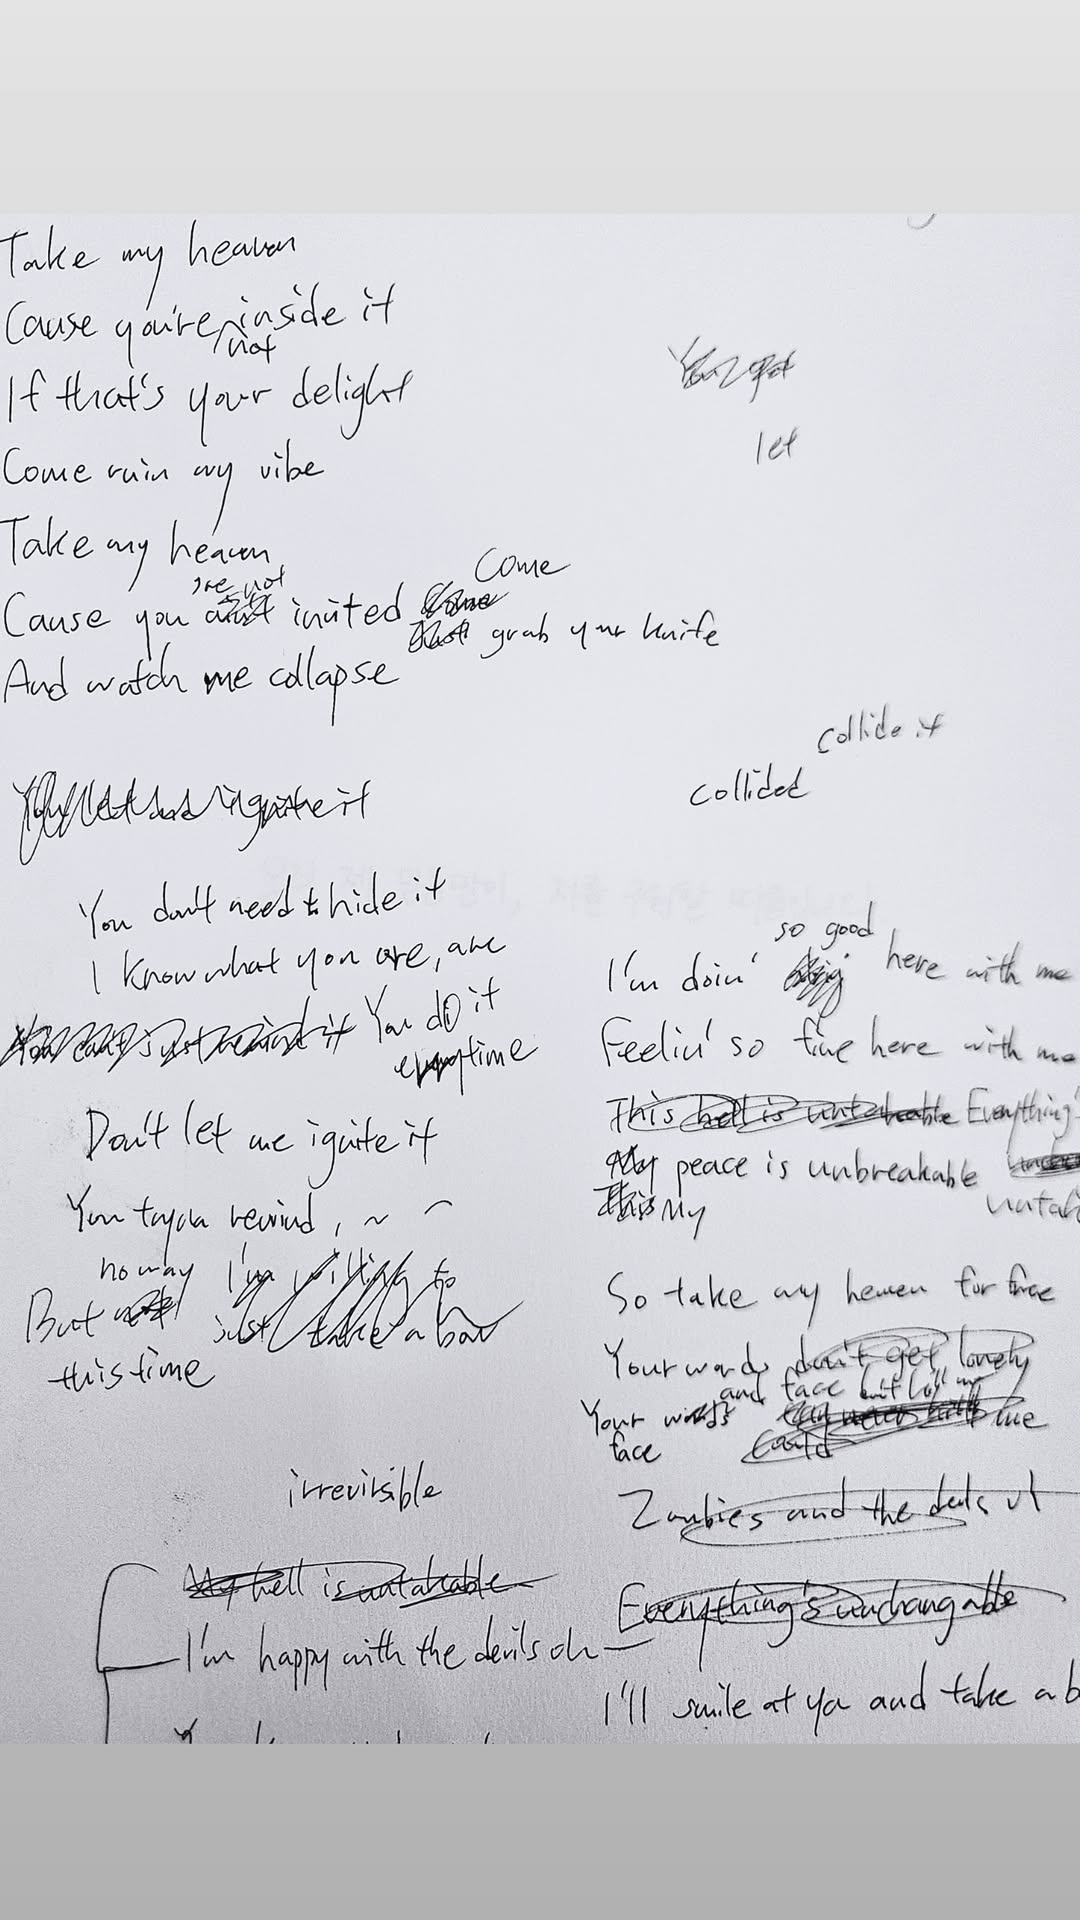 Take my heaven
Cause you're not inside it
If that's your delight
Come ruin my vibe
Take my heaven
're not
Cause you ain't invited Come
Come
Just grab your knife
And watch me collapse
ignite it
You don't need to hide it
I know what you are, are
You can't just rewind it You do it
everytime
Don't let me ignite it
rewind, ~
no way I'm willing to
But just take a bow
this time
irrevirsible
My hell is untakeable
I'm happy with the devils oh
You got
let
collide it
collided
so good
I'm doin' here with me
Feelin' so fine here with me
This hell is untakeable Everything's
My peace is unbreakable
This My
So take my heaven for free
Your words don't get lonely
and face
Your words me
face could
Zombies and the
Everything's unchangable
I'll smile at ya and take a b